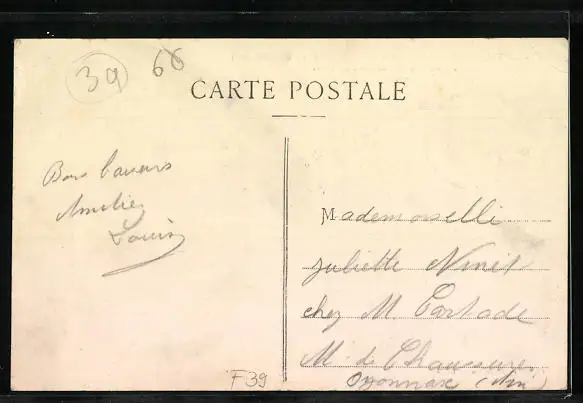 39
66
CARTE POSTALE
Bons baisers
Amelie
Louis
Mademoiselle
Juliette Ninet
chez M. Tartade
M. de Chaussures
Oyonnax (Ain)
F39